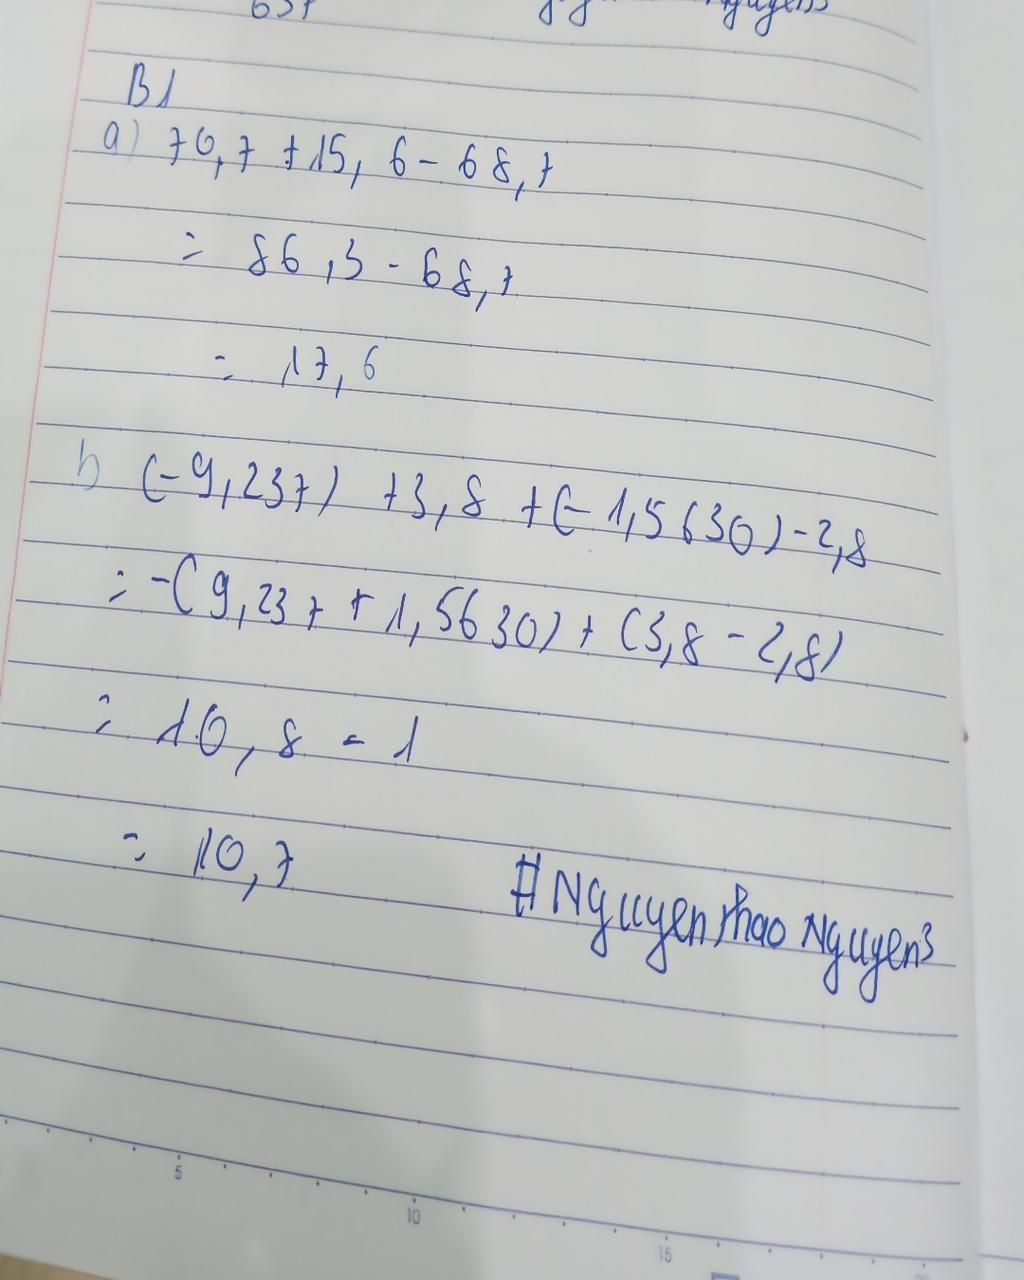 B1
a) 70,7 + 15, 6 - 68,7
= 86,3 - 68,7
= 17,6
b (-9,237) +3,8 + (-1,5630) - 2,8
= -(9,237 + 1,5630) + (3,8 - 2,8)
= 10,8 - 1
= 10,7
#Nguyen thao Nguyen3
5
10
15